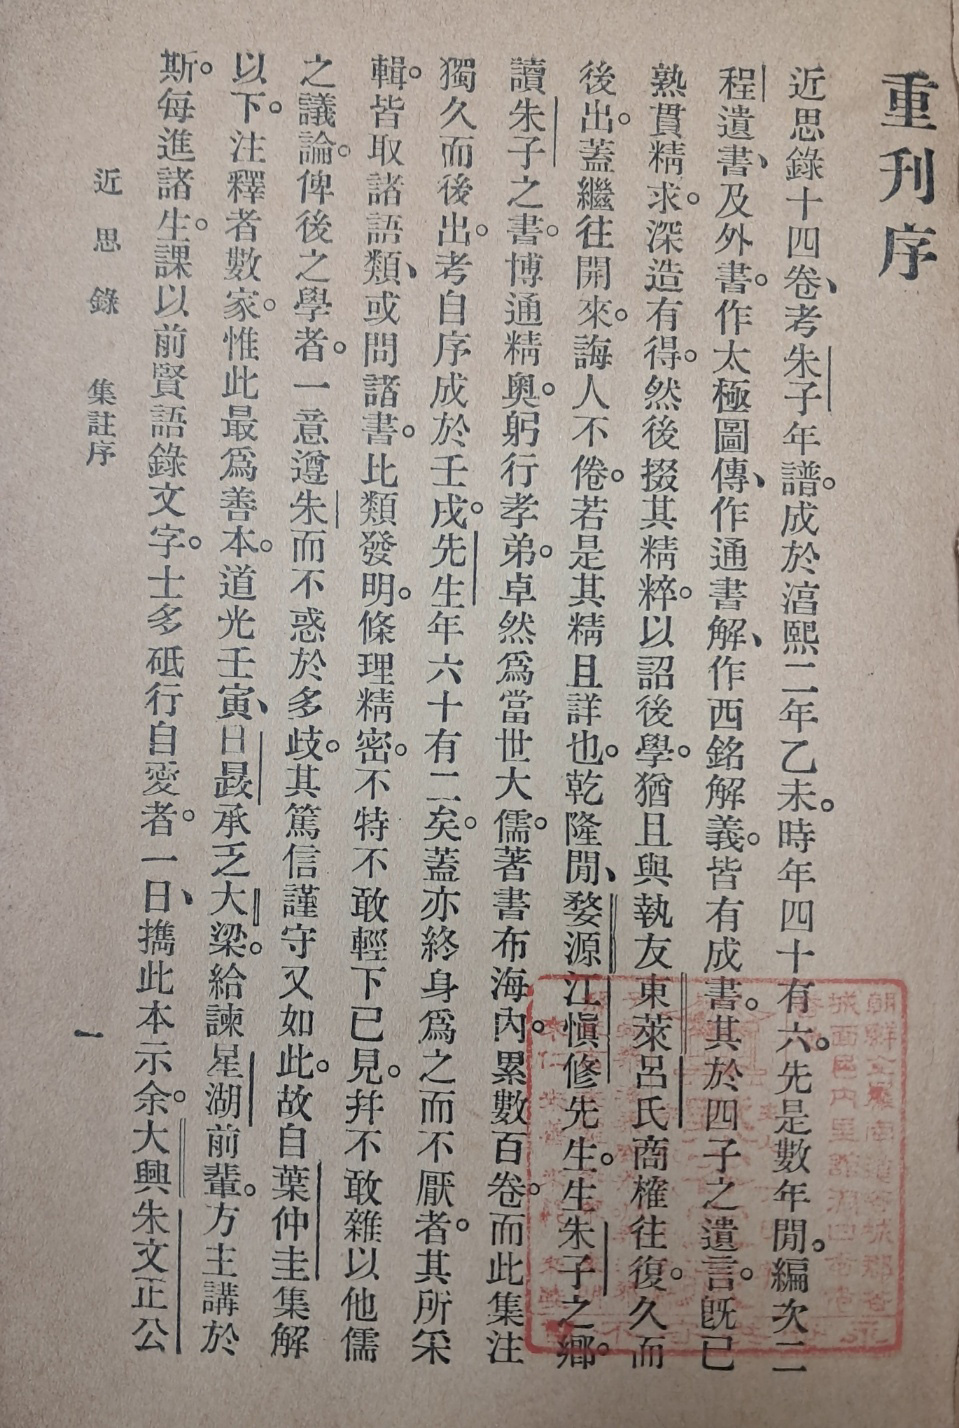 重刊序
近思錄十四卷、考朱子年譜。成於湻熙二年乙未。時年四十有六。先是數年閒。編次二
程遺書、及外書。作太極圖傳、作通書解、作西銘解義。皆有成書。其於四子之遺言。旣已
熟貫精求。深造有得。然後掇其精粹。以詔後學。猶且與執友東萊呂氏商榷往復。久而
後出。蓋繼往開來。誨人不倦。若是其精且詳也。乾隆閒、婺源江愼修先生。生朱子之鄕。
讀朱子之書。博通精奥。躬行孝弟。卓然爲當世大儒。著書布海內。累數百卷。而此集注
獨久而後出。考自序成於壬戌。先生年六十有二矣。蓋亦終身爲之而不厭者。其所采
輯。皆取諸語類、或問諸書。比類發明。條理精密。不特不敢輕下已見。幷不敢雜以他儒
之議論。俾後之學者。一意遵朱而不惑於多歧。其篤信謹守又如此。故自葉仲圭集解
以下。注釋者數家。惟此最爲善本。道光壬寅、日晸承乏大梁。給諫星湖前輩。方主講於
斯。每進諸生。課以前賢語錄文字。士多砥行自愛者。一日、擕此本示余。大興朱文正公
近思錄 集註序
一